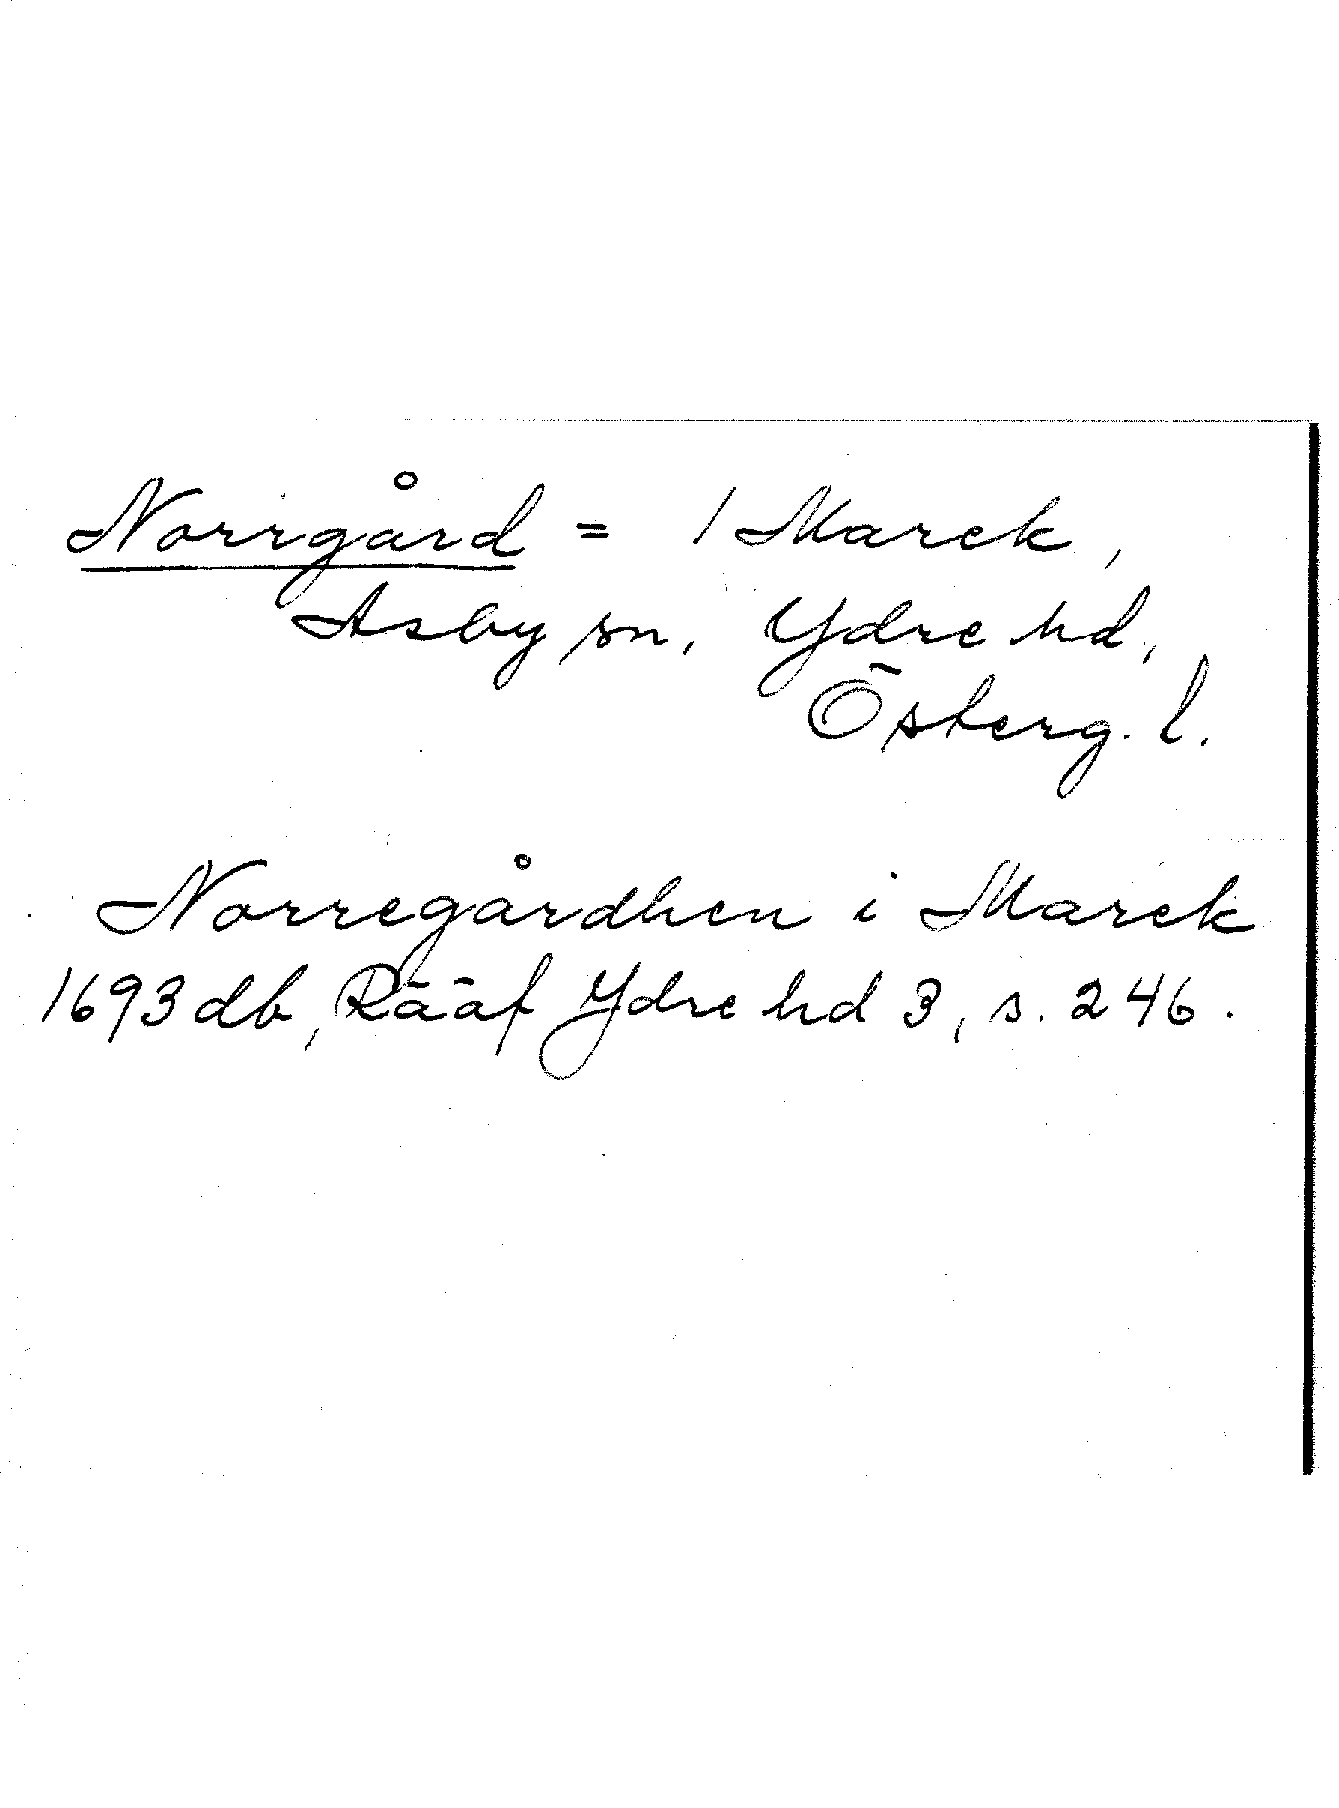 Norrgård = 1 Marek,
Asby sn, Ydre hd,
Österg. l.
Norregårdhen i Marek
1693 db, Rääf Ydre hd 3, s. 246.